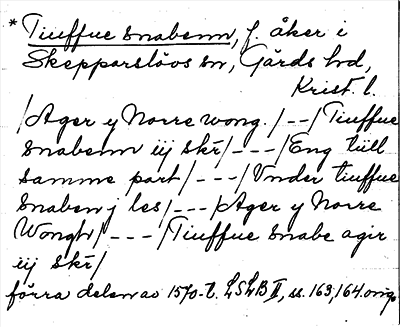 * Tiuffue snabenn, f. åker i
Skepparslövs sn, Gärds hd,
Krist. l.
/Ager y Norre wong. /--/Tiuffue
snabenn iij skr/---/Eng till
samme part/---/Vnder tiuffue
snaben j les/---/Ager y Norre
Wongh/---/Tiuffue snabe agir
iij skr/
förra delen av 1570-t. LSLB II, ss. 163, 164.